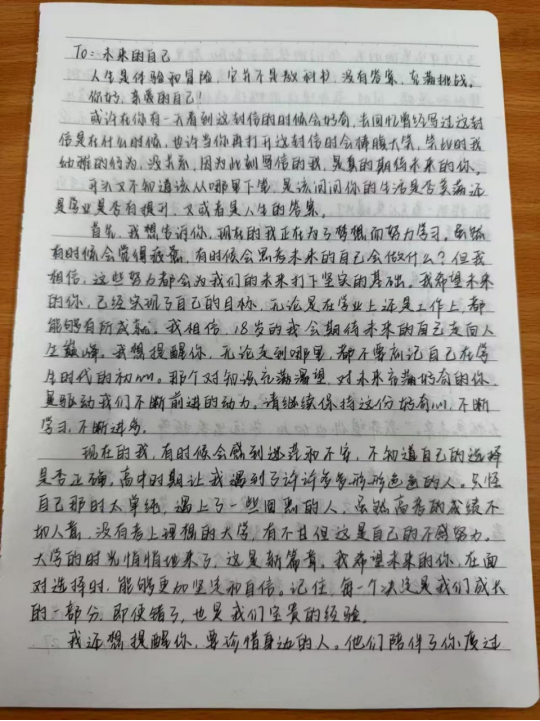 To：未来的自己
人生是体验和冒险，它并不是教科书，没有答案，充满挑战。
你好，亲爱的自己！
或许在你有一天看到这封信的时候会好奇，去回忆曾经写过这封
信是在什么时候，也许当你再打开这封信时会捧腹大笑，笑此时我
幼稚的行为，没关系，因为此刻写信的我，是真的期待未来的你。
可我又不知道该从哪里下笔，是该问问你的生活是否美满还
是学业是否有提升，又或者是人生的答案。
首先，我想告诉你，现在的我正在为了梦想而努力学习。虽然
有时候会觉得疲惫，有时候会思考未来的自己会做什么？但我
相信，这些努力都会为我们的未来打下坚实的基础。我希望未来
的你，已经实现了自己的目标，无论是在学业上还是工作上，都
能够有所成就。我相信，18岁的我会期待未来的自己走向人
生巅峰。我想提醒你，无论走到哪里，都不要忘记自己在学
生时代的初心。那个对知识充满渴望，对未来充满好奇的你，
是驱动我们不断前进的动力。请继续保持这份好奇心，不断
学习，不断进步。
现在的我，有时候会感到迷茫和不安，不知道自己的选择
是否正确，高中时期让我遇到了许许多多形形色色的人。只怪
自己那时太单纯，遇上了一些回忆的人，虽然高考的成绩不
如人意，没有考上理想的大学，有不甘但这是自己的不够努力。
大学的时光悄悄地来了，这是新篇章，我希望未来的你，在面
对选择时，能够更加坚定和自信。记住，每一个决定是我们成长
的一部分，即使错了，也是我们宝贵的经验。
我还想提醒你，要珍惜身边的人。他们陪伴了你度过